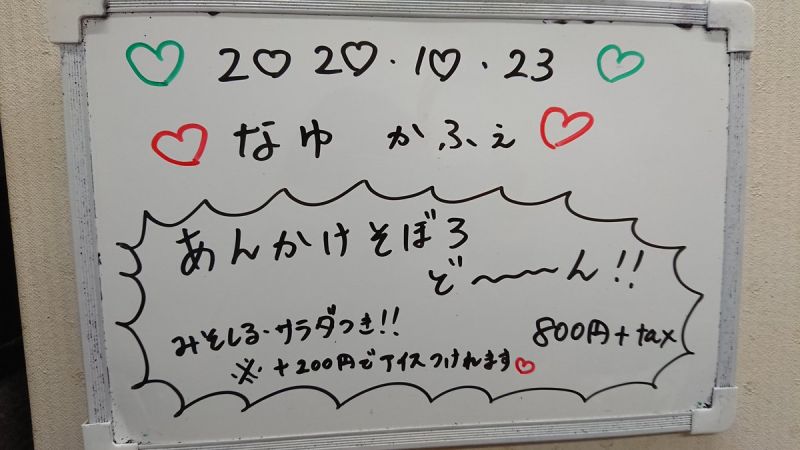 2020.10.23
なゆ かふぇ
あんかけそぼろ
ど〜〜〜ん!!
みそしる・サラダつき!!
800円+tax
※+200円でアイスつけれます